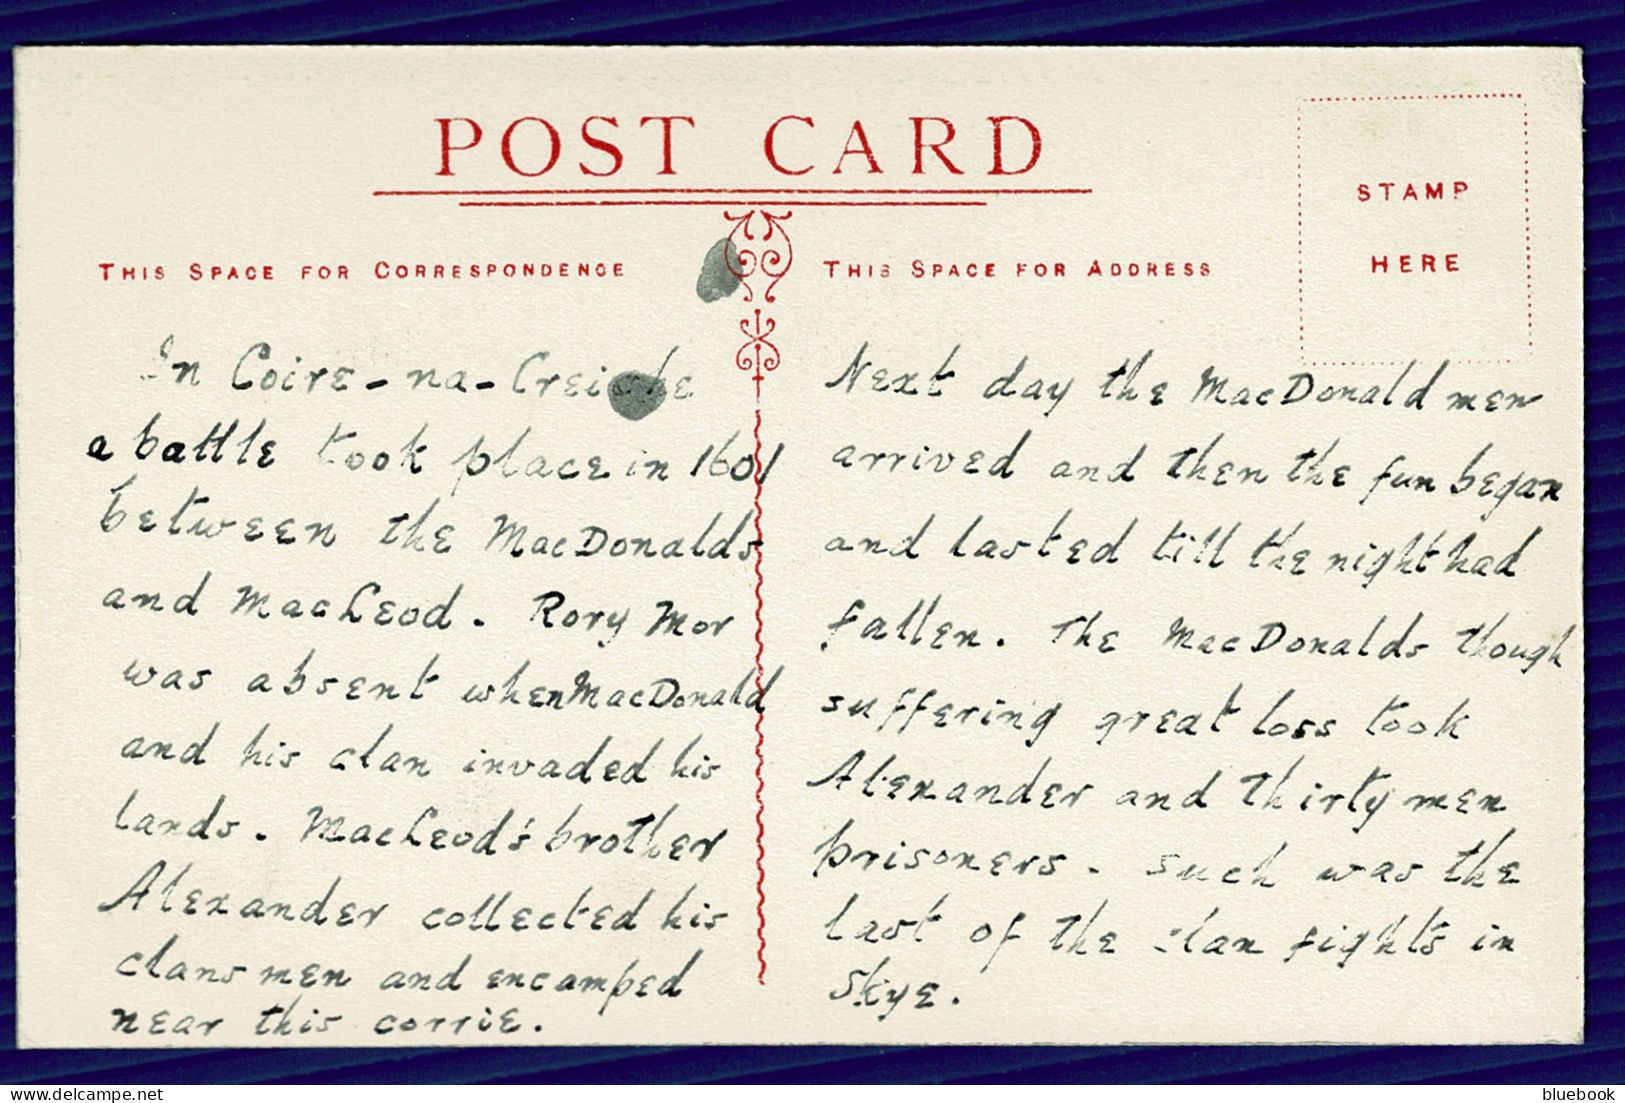 POST CARD
STAMP
HERE
THIS SPACE FOR CORRESPONDENCE
In Coire-na-Creiche
a battle took place in 1601
between the MacDonalds
and MacLeod. Rory Mor
was absent when MacDonald
and his clan invaded his
lands. MacLeod's brother
Alexander collected his
clansmen and encamped
near this corrie.
THIS SPACE FOR ADDRESS
Next day the MacDonald men
arrived and then the fun began
and lasted till the night had
fallen. The MacDonalds though
suffering great loss took
Alexander and thirty men
prisoners. Such was the
last of the clan fights in
Skye.
bluebook